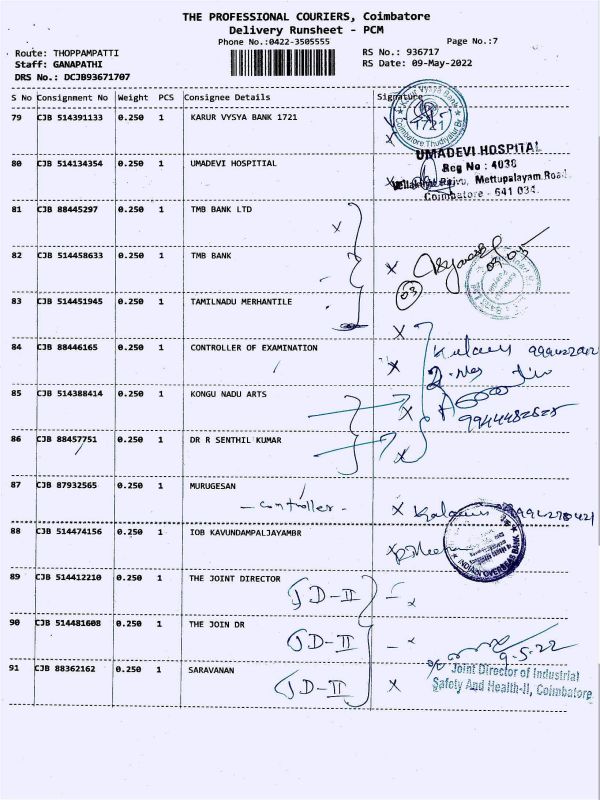 THE PROFESSIONAL COURIERS, Coimbatore
Delivery Runsheet - PCM
Phone No.:0422-3505555 Page No.:7
Route: THOPPAMPATTI RS No.: 936717
Staff: GANAPATHI RS Date: 09-May-2022
DRS No.: DCJB93671707
S No Consignment No Weight PCS Consignee Details Signature
79 CJB 514391133 0.250 1 KARUR VYSYA BANK 1721
Karur Vysya Bank
1721
Coimbatore Thudiyalur Br
80 CJB 514134354 0.250 1 UMADEVI HOSPITIAL
UMADEVI HOSPITAL
Reg No : 4038
Mettupalayam Road
Coimbatore - 641 034.
81 CJB 88445297 0.250 1 TMB BANK LTD
82 CJB 514458633 0.250 1 TMB BANK
03
83 CJB 514451945 0.250 1 TAMILNADU MERHANTILE
84 CJB 88446165 0.250 1 CONTROLLER OF EXAMINATION
85 CJB 514388414 0.250 1 KONGU NADU ARTS
86 CJB 88457751 0.250 1 DR R SENTHIL KUMAR
87 CJB 87932565 0.250 1 MURUGESAN
- Controller -
88 CJB 514474156 0.250 1 IOB KAVUNDAMPALJAYAMBR
INDIAN OVERSEAS BANK
89 CJB 514412210 0.250 1 THE JOINT DIRECTOR
JD-II
90 CJB 514481608 0.250 1 THE JOIN DR
JD-II
9.5.22
91 CJB 88362162 0.250 1 SARAVANAN
JD-II
Joint Director of Industrial
Safety And Health-II, Coimbatore